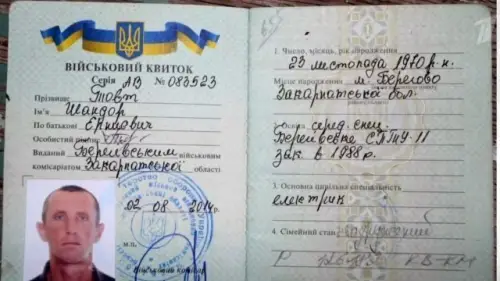 ВІЙСЬКОВИЙ КВИТОК
Серія АВ № 083523
Прізвище Товт
Ім'я Шандор
По батькові
Особистий
Виданий Берегівським військовим
комісаріатом Закарпатської області
02 08 2014
м.п.
Військовий комісар
1. Число, місяць, рік народження
23 листопада 1970 р.н.
Місце народження м. Берегово
Закарпатська обл.
серед. спец.
СПТУ-11
зак. в 1988 р.
3. Основна цивільна спеціальність
електрик
4. Сімейний стан